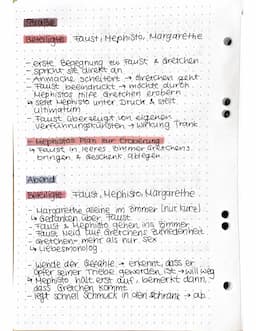 Straße
Beteiligte Faust, Mephisto, Margarethe
- erste Begegnung zw. Faust & Gretchen
- spricht sie direkt an
- Anmache scheitert → Gretchen geht
- Faust beeindruckt → möchte durch
Mephistos Hilfe Gretchen erobern
↳ setzt Mephisto unter Druck & stellt
Ultimatum
- Faust überzeugt von eigenen
Verführungskünsten → Wirkung Trank
- Mephistos Plan zur Eroberung
↳ Faust in leeres Zimmer Gretchens
bringen & Geschenk ablegen
Abend
Beteiligte Faust, Mephisto, Margarethe
- Margarethe alleine im Zimmer (nur kurz)
↳ Gedanken über Faust
- Faust & Mephisto gehen ins Zimmer
- Faust Neid auf Gretchens Zufriedenheit
- Gretchen - mehr als nur Sex
↳ Liebesmonolog
- Wende der Gefühle → erkennt, dass er
Opfer seiner Triebe geworden ist → will weg
↳ Mephisto hält erst auf, bemerkt dann,
dass Gretchen kommt
- legt schnell Schmuck in den Schrank → ab